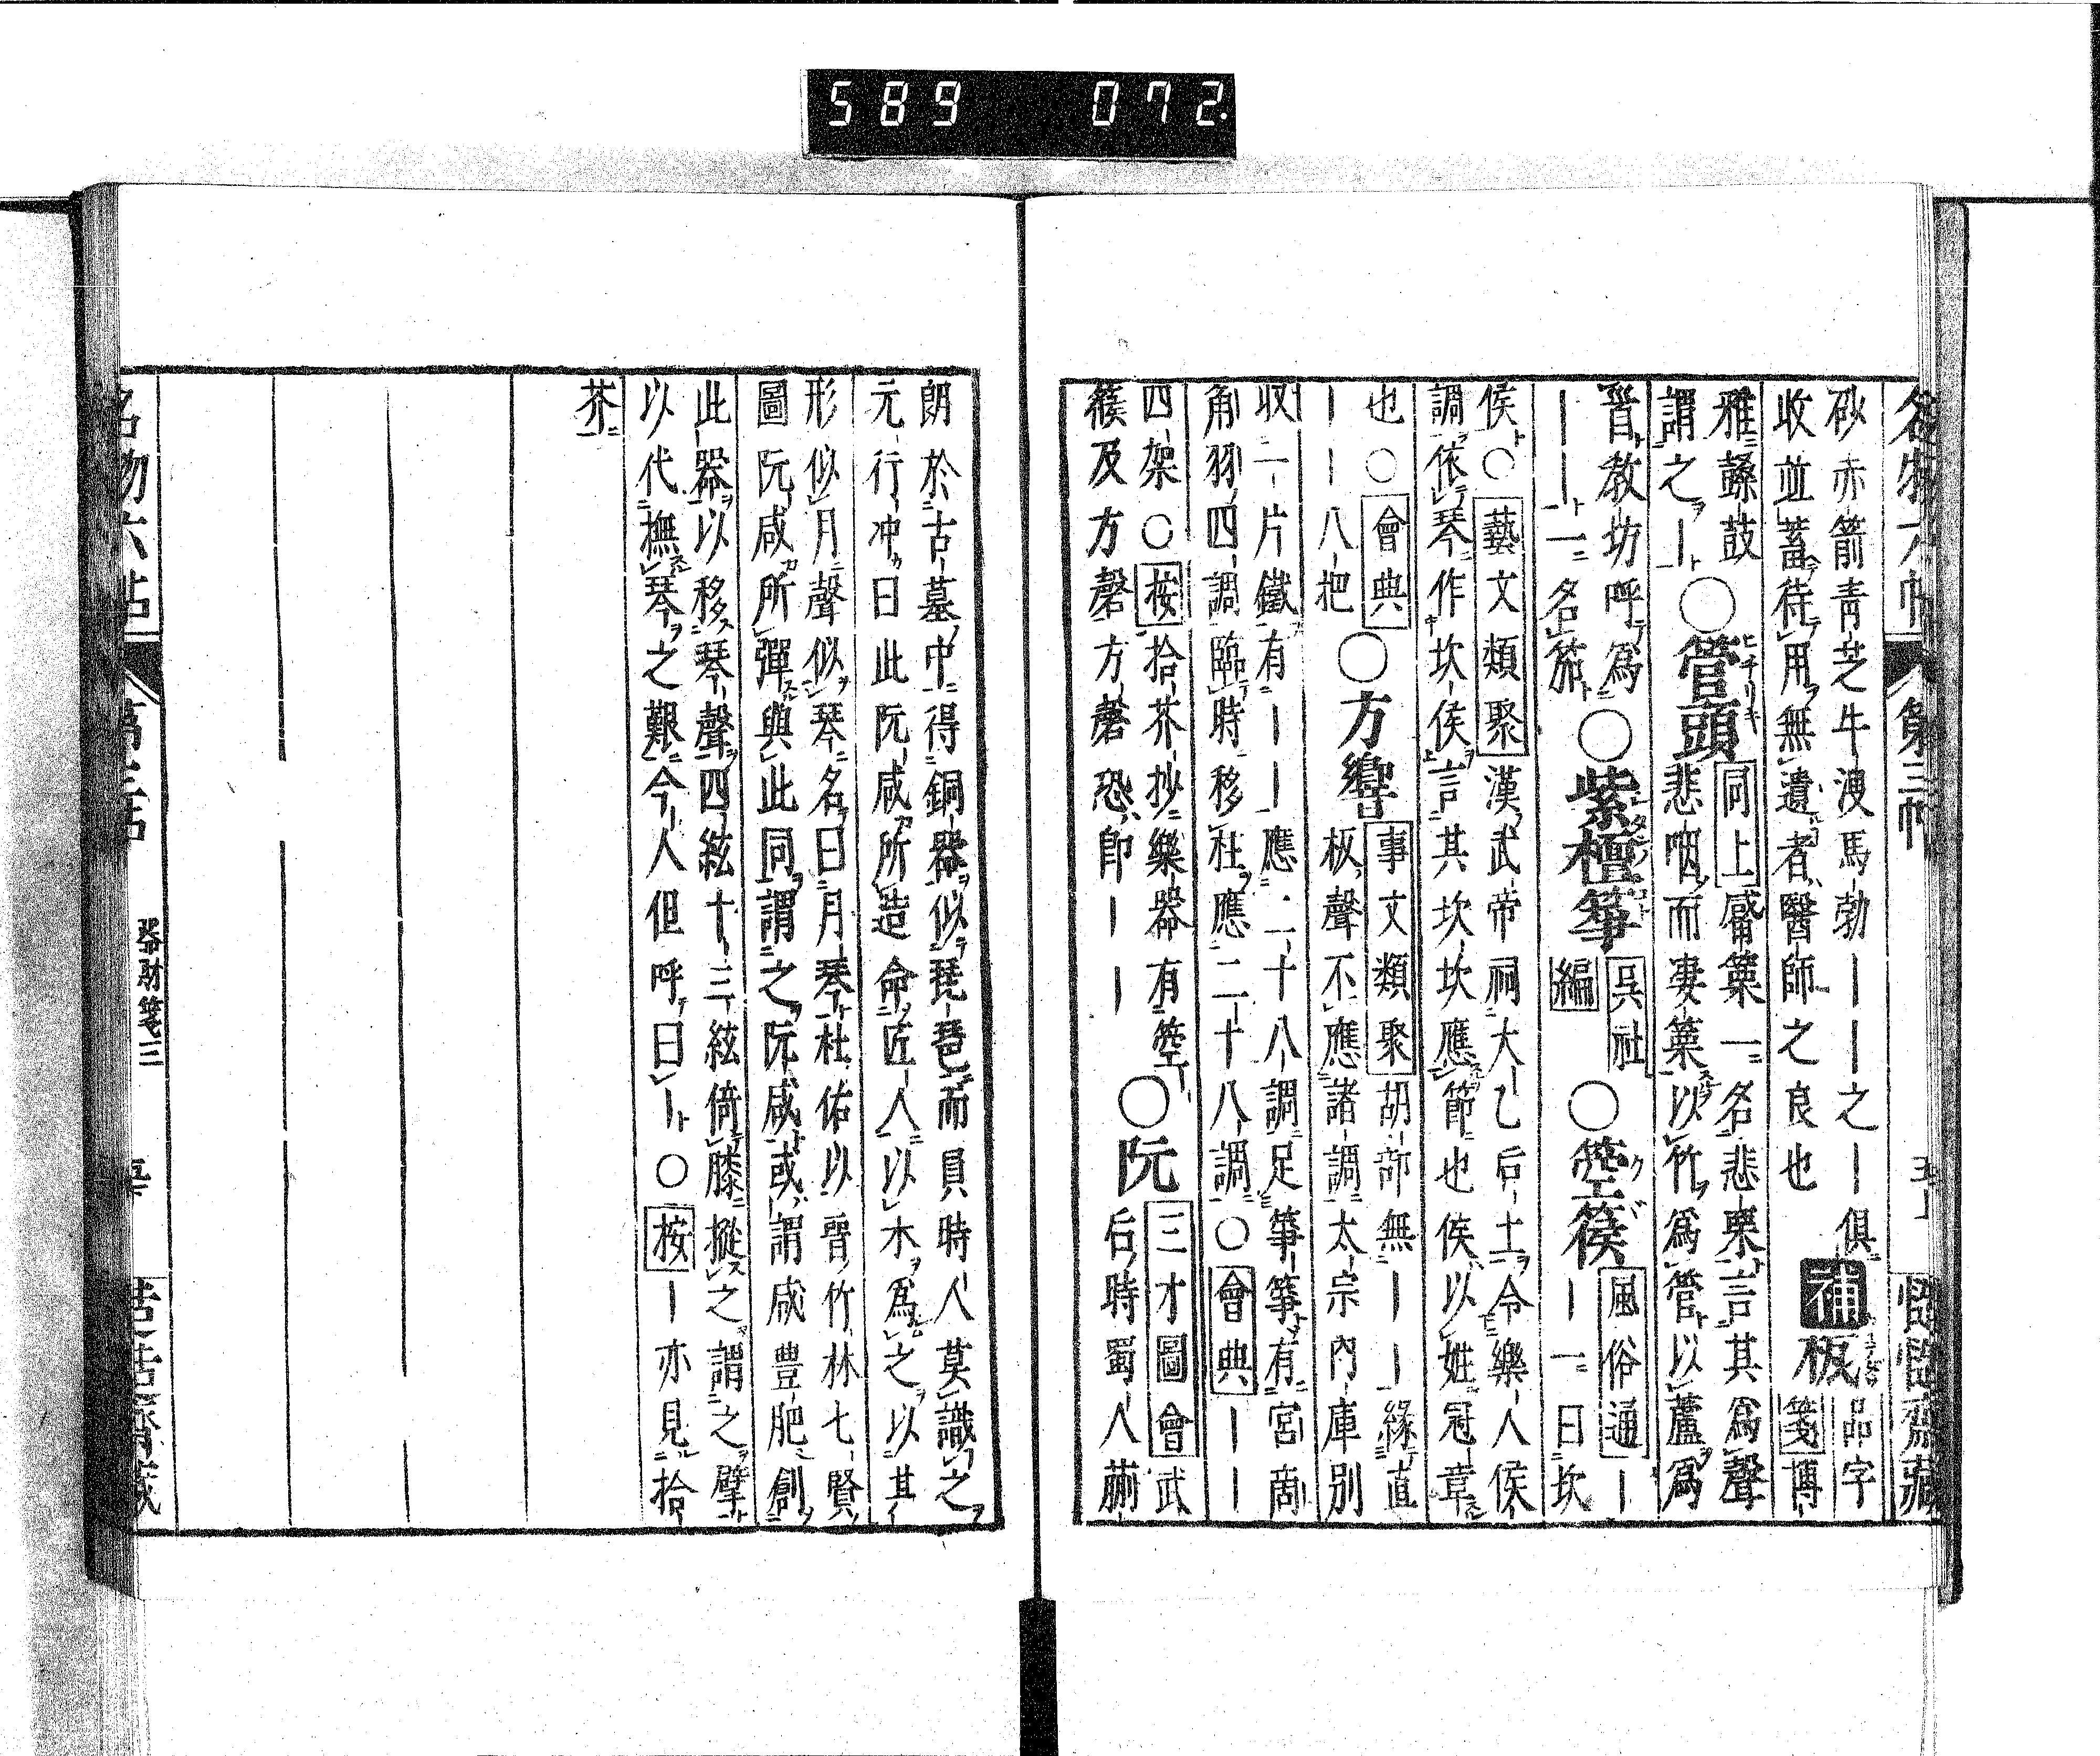 589 072.
名物六帖 第三帖 五十 
砂赤箭青芝牛溲馬勃｜｜之｜俱
收並蓄待用無遺者醫師之良也
補
板
品字
箋博
雅鼛鼓
謂之｜
○管頭
ヒチリキ
同上觱篥一名悲栗言其為聲
悲咽而凄篥以竹為管以蘆為
晋教坊呼為
｜｜一名笳
○紫檀箏
吳社
編
○箜篌
クゴ
風俗通｜
｜一曰坎
侯○藝文類聚漢武帝祠大乙后土令樂人侯
調依琴作坎侯言其坎坎應節也侯以姓冠章
也○會典
｜｜八把
○方響
事文類聚胡部無｜｜緣直
板聲不應諸調太宗內庫別
収二片鐵有｜｜應二十八調足箏箏有宮商
角羽四調臨時移柱應二十八調○會典｜｜
四架○按拾芥抄樂器有箜
篌及方磬方磬恐即｜｜
○阮
三才圖會武
后時蜀人蒯
朗於古墓中得銅器似琵琶而員時人莫識之
元行冲曰此阮咸所造命匠人以木為之以其
形似月聲似琴名曰月琴杜佑以晋竹林七賢
圖阮咸所彈與此同謂之阮咸或謂咸豊肥創
此器以移琴聲四絃十三絃倚膝摐之謂之擘
以代撫琴之艱今人但呼曰｜○按｜亦見拾
芥
名物六帖 器財箋三